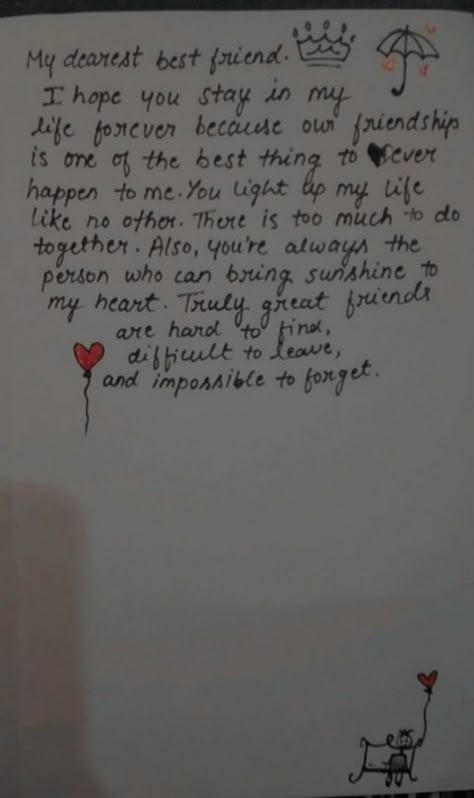 My dearest best friend.
I hope you stay in my
life forever because our friendship
is one of the best thing to ever
happen to me. You light up my life
like no other. There is too much to do
together. Also, you're always the
person who can bring sunshine to
my heart. Truly great friends
are hard to find,
difficult to leave,
and impossible to forget.